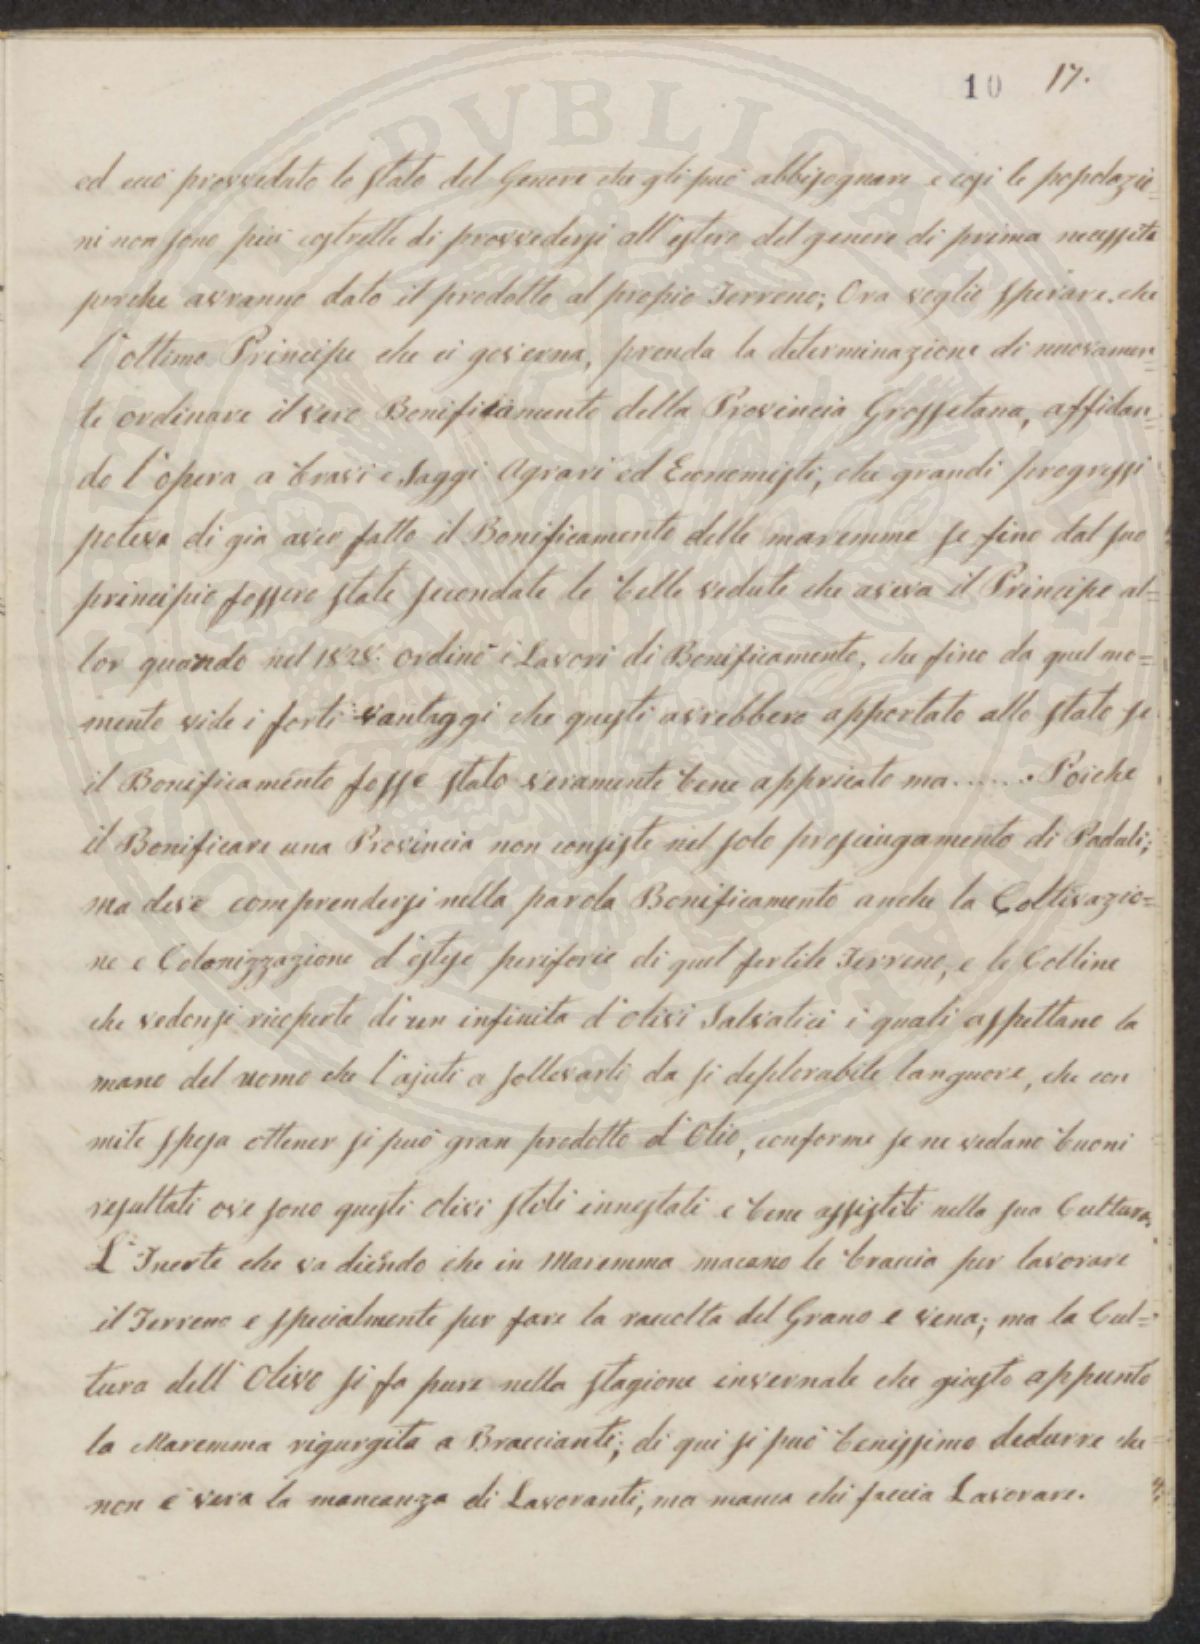 10 17.
ed ecco provvedato lo stato del Genere che gli può abbisognare e così le popolazio=
ni non sono più costrette di provvedersi all'estero del genere di prima necessità
perche avranno dato il prodotto al propio Terreno; Ora voglio sperare che
l'ottimo Principe che ci governa, prenda la determinazione di nuovamen=
te ordinare il vero Bonificamento della Provincia Grossetana, affidan=
do l'opera a bravi e Saggi Agrari ed Economisti, che grandi progressi
poteva di già aver fatto il Bonificamento delle maremme se fino dal suo
principio fossero state secondate le belle vedute che aveva il Principe al=
lor quando nel 1828. ordinò i Lavori di Bonificamento, che fino da quel mo=
mento vide i forti vantaggi che questi avrebbero apportato allo stato se
il Bonificamento fosse stato veramente bene appricato ma ...... Poiche
il Bonificare una Provincia non consiste nel solo prosciugamento di Paduli;
ma deve comprendersi nella parola Bonificamento anche la Coltivazio=
ne e Colonizzazione d'estese periferie di quel fertile Terreno, e le Colline
che vedonsi ricoperte di un infinita d'olivi Salvatici i quali aspettano la
mano del uomo che l'ajuti a sollevarli da si deplorabile languore, che con
mite spesa ottener si può gran prodotto d'Olio, conforme se ne vedano buoni
resultati ove sono questi olivi stati innestati e bene assistiti nella sua Cultura.
L'Inerte che va dicendo che in Maremma macano le braccia per lavorare
il Terreno e specialmente per fare la raccolta del Grano e vena; ma la Cul=
tura dell'Olivo si fa pure nella stagione invernale che giusto appunto
la Maremma rigurgita a Braccianti; di qui si può benissimo dedurre che
non è vera la mancanza di Lavoranti, ma manca chi faccia Lavorare.